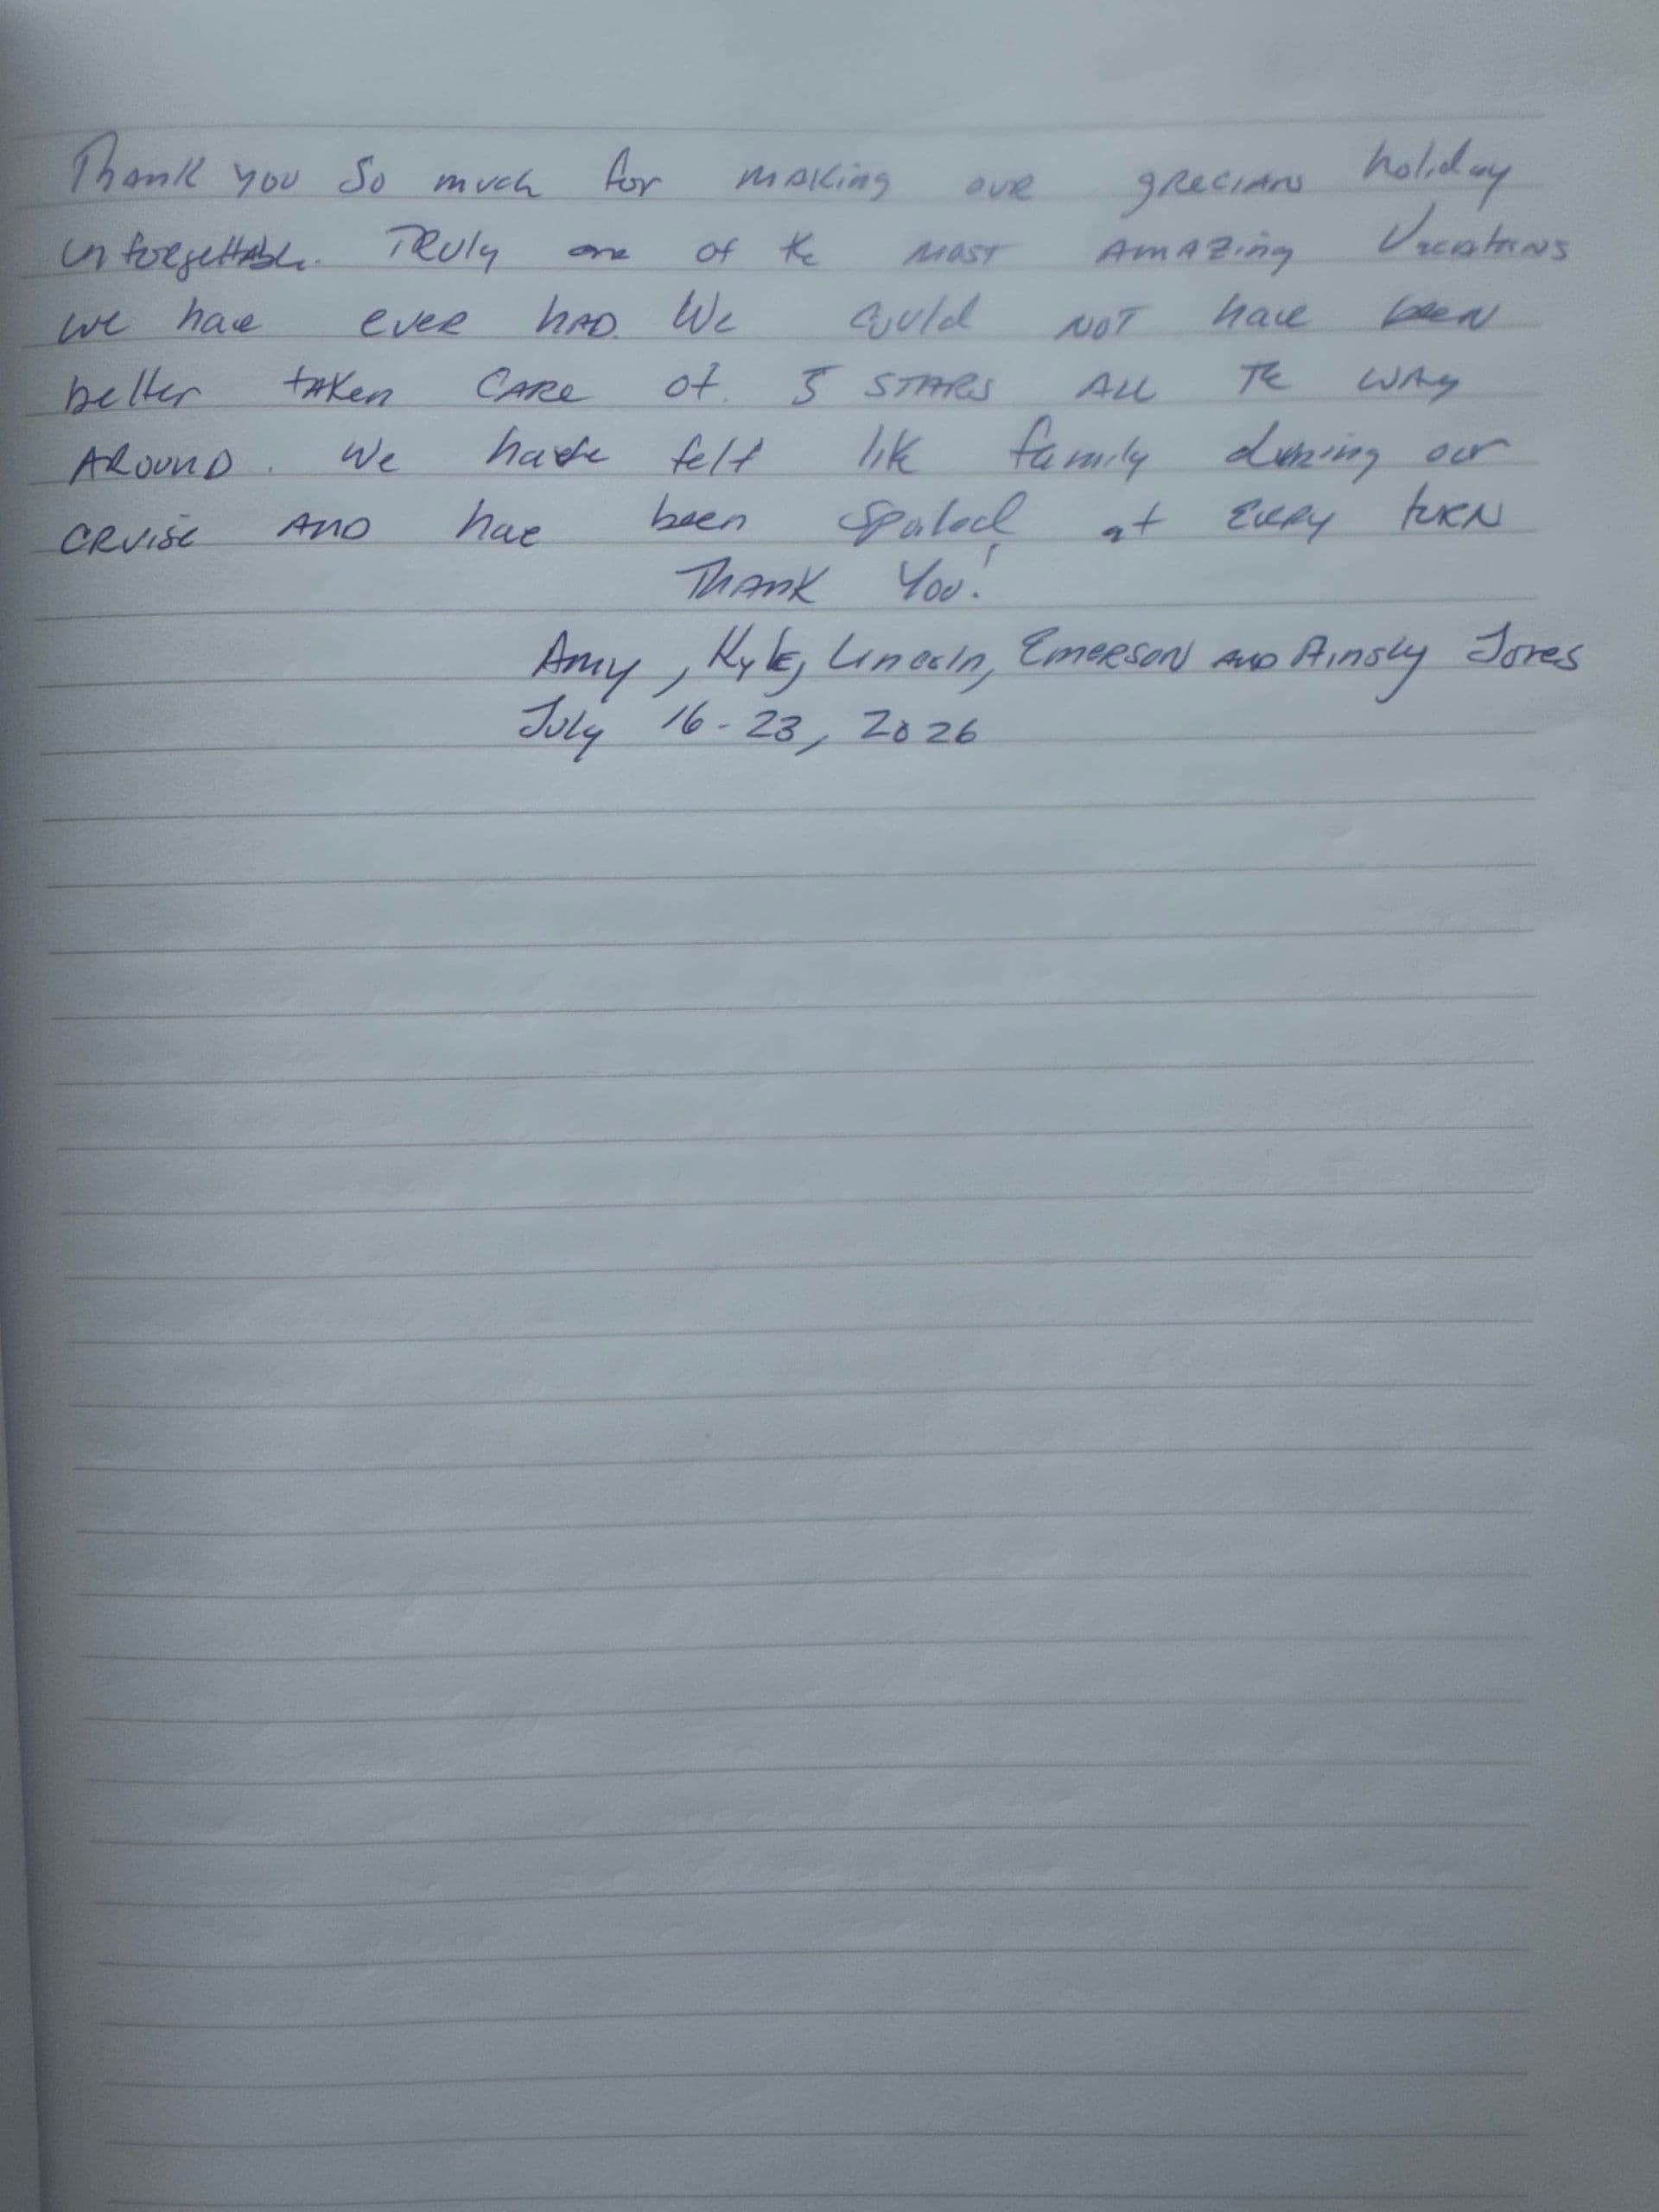 Thank you so much for making our grecian holiday
unforgettable. Truly one of the most amazing vacations
we have ever had. We could not have been
better taken care of. 5 stars all the way
around. We have felt like family during our
cruise and have been spoiled at every turn
Thank you!
Amy, Kyle, Lincoln, Emerson and Ainsly Jones
July 16-23, 2026